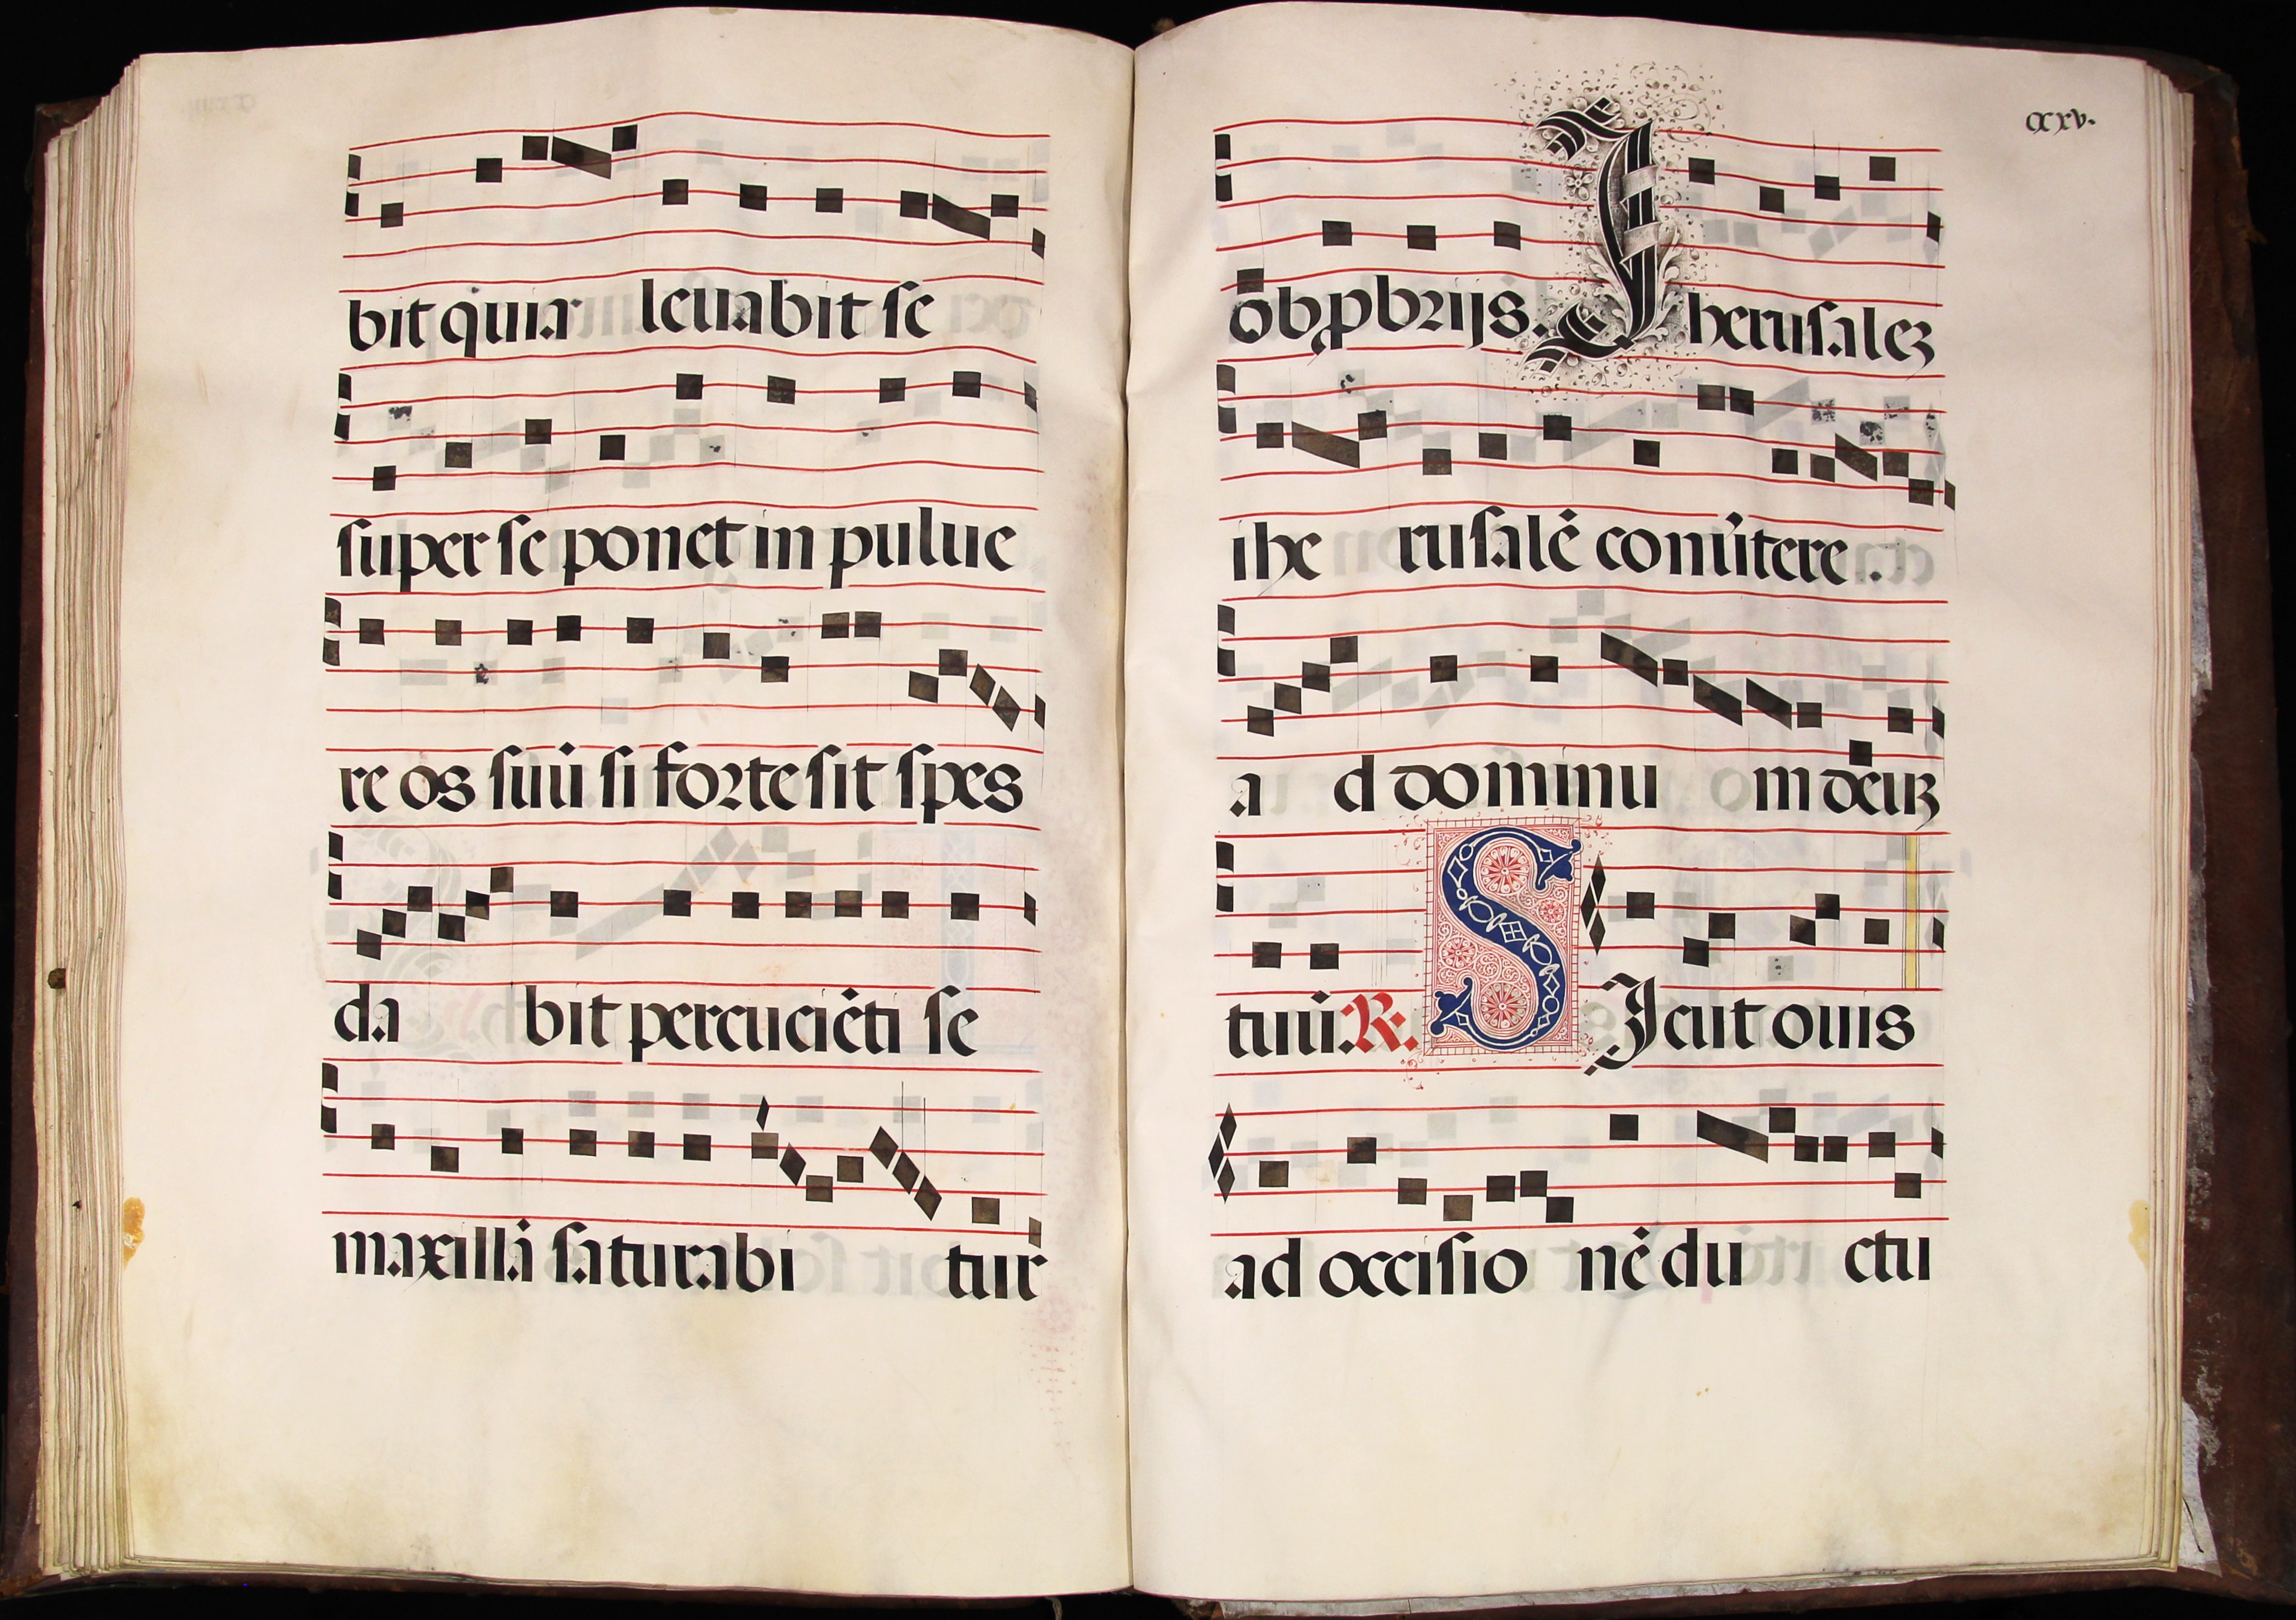 bit quia leuabit se
super se ponet in pulue
re os suū si forte sit spes
da bit percuciēti se
maxillā saturabi tur
cxxv.
obꝓbrijs. Iherusaleꝫ
ihe rusalē conu̓tere.
a d dominu m deuꝫ
tuū. R. SIcut ouis
ad occisio nē du ctu